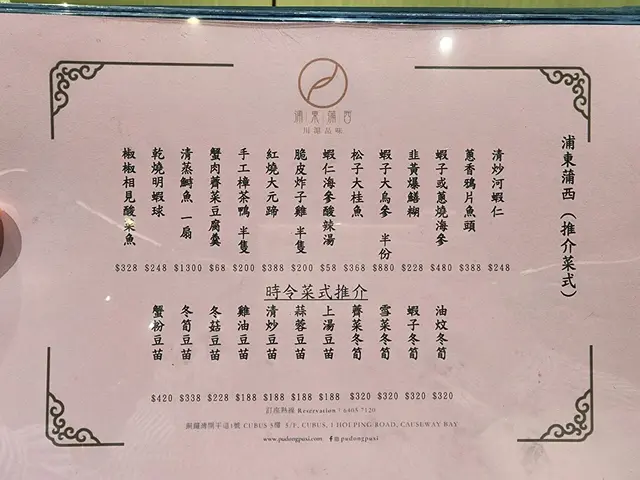 浦東蒲西
川滬品味
浦東蒲西（推介菜式）
清炒河蝦仁 $248
蔥香鴉片魚頭 $388
蝦子或蔥燒海參 $480
韭黃爆鱔糊 $228
蝦子大烏參 半份 $880
松子大桂魚 $368
蝦仁海參酸辣湯 $58
脆皮炸子雞 半隻 $200
紅燒大元蹄 $388
手工樟茶鴨 半隻 $200
蟹肉薺菜豆腐羹 $68
清蒸鰣魚 一扇 $1300
乾燒明蝦球 $248
椒椒相見酸菜魚 $328
時令菜式推介
油炆冬筍 $320
蝦子冬筍 $320
雪菜冬筍 $320
薺菜冬筍 $320
上湯豆苗 $188
蒜蓉豆苗 $188
清炒豆苗 $188
雞油豆苗 $188
冬菇豆苗 $228
冬筍豆苗 $338
蟹粉豆苗 $420
訂座熱線 Reservation : 6405 7120
銅鑼灣開平道1號 CUBUS 5樓 5/F, CUBUS, 1 HOI PING ROAD, CAUSEWAY BAY
www.pudongpuxi.com pudongpuxi